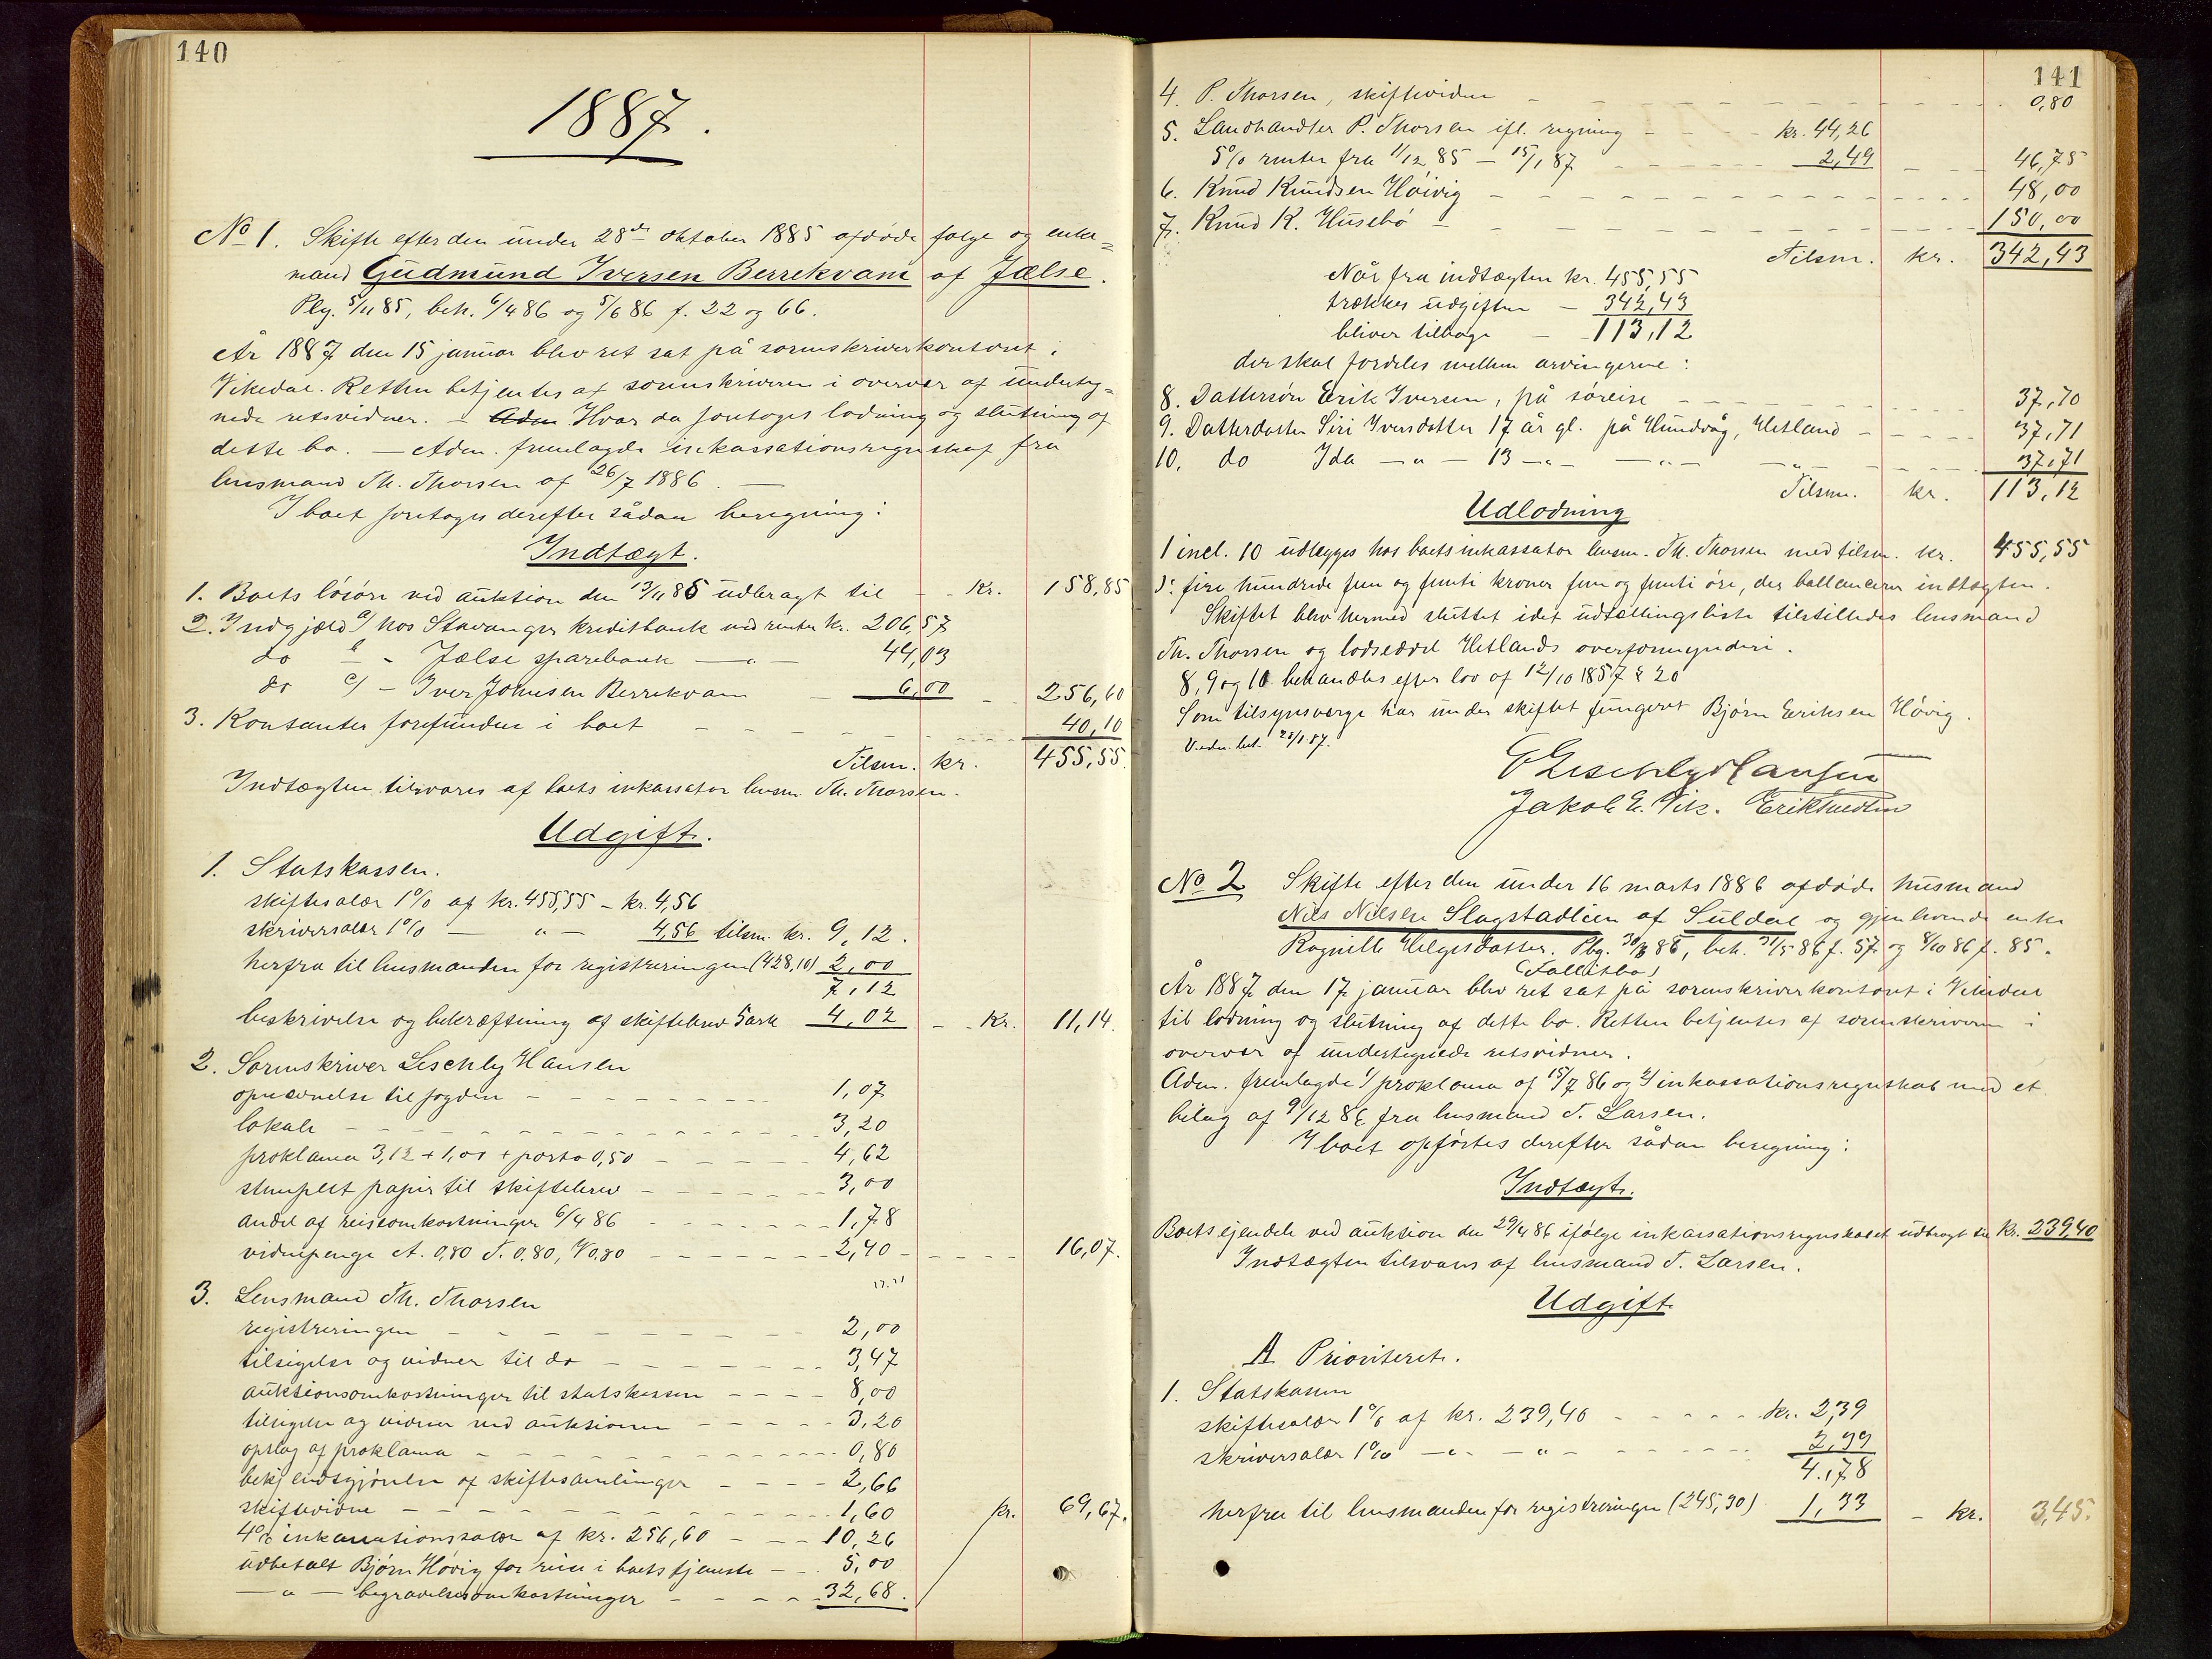 140
1887.
No 1. Skifte efter den under 28de oktober 1885 afdøde følge og enke=
mand Gudmund Iversen Berrekvam af Jælse.
Plg. 5/11 85, beh. 6/4 86 og 5/6 86 f. 22 og 66.
År 1887 den 15 januar blev ret sat på sorenskriverkontoret i
Vikedal. Retten betjentes af sorenskriveren i overvær af underteg=
nede retsvidner. – Adm Hvor da foretoges lodning og slutning af
dette bo. – Adm. fremlagde inkassationsregnskap fra
lensmand Th. Thorsen af 26/7 1886. –
I boet foretoges derefter sådan beregning:
Indtægt.
1. Boets løsøre ved auktion den 13/11 85 udbragt til – Kr. 158,85
2. Indgjæld a/ hos Stavanger kreditbank med renter kr. 206,57
do b – Jælse sparebank – " – 44,03
do c/ – Iver Johnsen Berrekvam – 6,00 – 256,60
3. Kontanter forefunden i boet – – – – 40,10
Tilsm. kr. 455,55.
Indtægten tilsvares af boets inkassator lensm. Th. Thorsen.
Udgift.
1. Statskassen.
skiftesalær 1% af kr. 455,55 – kr. 4,56
skriversalær 1% – " – 4,56 tilsm. kr. 9,12.
herfra til lensmanden for registreringen (428,10) 2,00
7,12
beskrivelse og bekræftning af skiftebrev 5 ark 4,02 – Kr. 11,14.
2. Sorenskriver Leschly Hansen
opnævnelse til fogden – – – – 1,07
lokale – – – – 3,20
proklama 3,12 + 1,00 + porto 0,50 – – – – 4,62
stemplet papir til skiftebrev – – – – 3,00
andel af reiseomkostninger 6/4 86 – – – – 1,78
vidnepenge A. 0,80 T. 0,80, V 0,80 – – – – 2,40 – – – – 16,07.
3. Lensmand Th. Thorsen
registreringen – – – – 2,00
tilsigelse og vidner til do – – – – 3,47
auktionsomkostninger til statskassen – – – – 8,00
tilsigelse og vidner ved auktionen – – – – 3,20
opslag af proklama – – – – 0,80
bekjendtgjørelse af skiftesamlinger – – – – 2,66
skiftevidne – – – – 1,60 kr. 69,67.
4% inkassationssalær af kr. 256,60 – – – 10,26
udbetalt Bjørn Høvig for reise i boets tjeneste – – 5,00
– " – begravelsesomkostninger – – – – 32,68.
141
4. P. Thorsen, skiftevidne – – – – 0,80
5. Landhandler P. Thorsen ifl. regning – – – kr. 44,26
5% renter fra 1/12 85 – 15/1 87 – – – – 2,49 – – 46,75
6. Knud Knudsen Høivig – – – – 48,00
7. Knud K. Husebø – – – – 150,00
Tilsm. kr. 342,43
Når fra indtægten kr. 455,55
trækkes udgiften – 342,43
bliver tilbage – 113,12
der skal fordeles mellem arvingerne:
8. Dattersøn Erik Iversen, på søreise – – – – 37,70
9. Datterdatter Siri Iversdatter 17 år gl. på Hundvåg, Hetland – – – – 37,71
10. do Ida – " – 13 – " – – " – – " – – – – 37,71
Tilsm. kr. 113,12
Udlodning
1 incl. 10 udlægges hos boets inkassator lensm. Th. Thorsen med tilsm. kr. 455,55
ɔ: fire hundrede fem og femti kroner fem og femti øre, der ballancerer indtægten.
Skiftet blev hermed sluttet idet udtællingsliste tilstilledes lensmand
Th. Thorsen og lodseddel Hetlands overformynderi.
8, 9 og 10 behandles efter lov af 12/10 1857 § 20
Som tilsynsværge har under skiftet fungeret Bjørn Eeriksen Høvig.
V. adm. bet. 28/1 87.
Leschly Hansen
Jakob E. Vik. Erik Knudsen
No 2 Skifte efter den under 16 marts 1886 afdøde husmand
Nils Nilsen Slagstadlien af Suldal og gjenlevende enke
Ragnille Helgesdatter. Plg. 30/3 86, beh. 31/5 86 f. 57 og 8/10 86 f. 85.
(Fallitbo)
År 1887 den 17 januar blev ret sat på sorenskriverkontoret i Vikedal
til lodning og slutning af dette bo. Retten betjentes af sorenskriveren i
overvær af undertegnede retsvidner.
Adm. fremlagde 1/ proklama af 15/7 86 og 2/ inkassationsregnskab med et
bilag af 9/12 86 fra lensmand T. Larsen.
I boet opførtes derefter sådan beregning:
Indtægt.
Boets ejendele ved auktion den 29/4 86 ifølge inkassationsregnskabet udbragt til Kr. 239,40
Indtægten tilsvares af lensmand T. Larsen.
Udgift.
A Prioriteret.
1. Statskassen
skiftesalær 1% af kr. 239,40 – – – – kr. 2,39
skriversalær 1% – " – – " – – – – 2,39
4,78
herfra til lensmanden for registreringen (245,30) 1,33 – kr. 3,45.